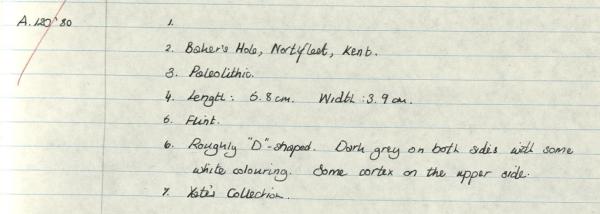 A.120'80 1.
2. Baker's Hole, Nortyfleet, Kent.
3. Paleolithic.
4. Length: 6.8cm. Width: 3.9 cm.
5. Flint.
6. Roughly "D"-shaped. Dark grey on both sides with some
white colouring. Some cortex on the upper side.
7. Collection.